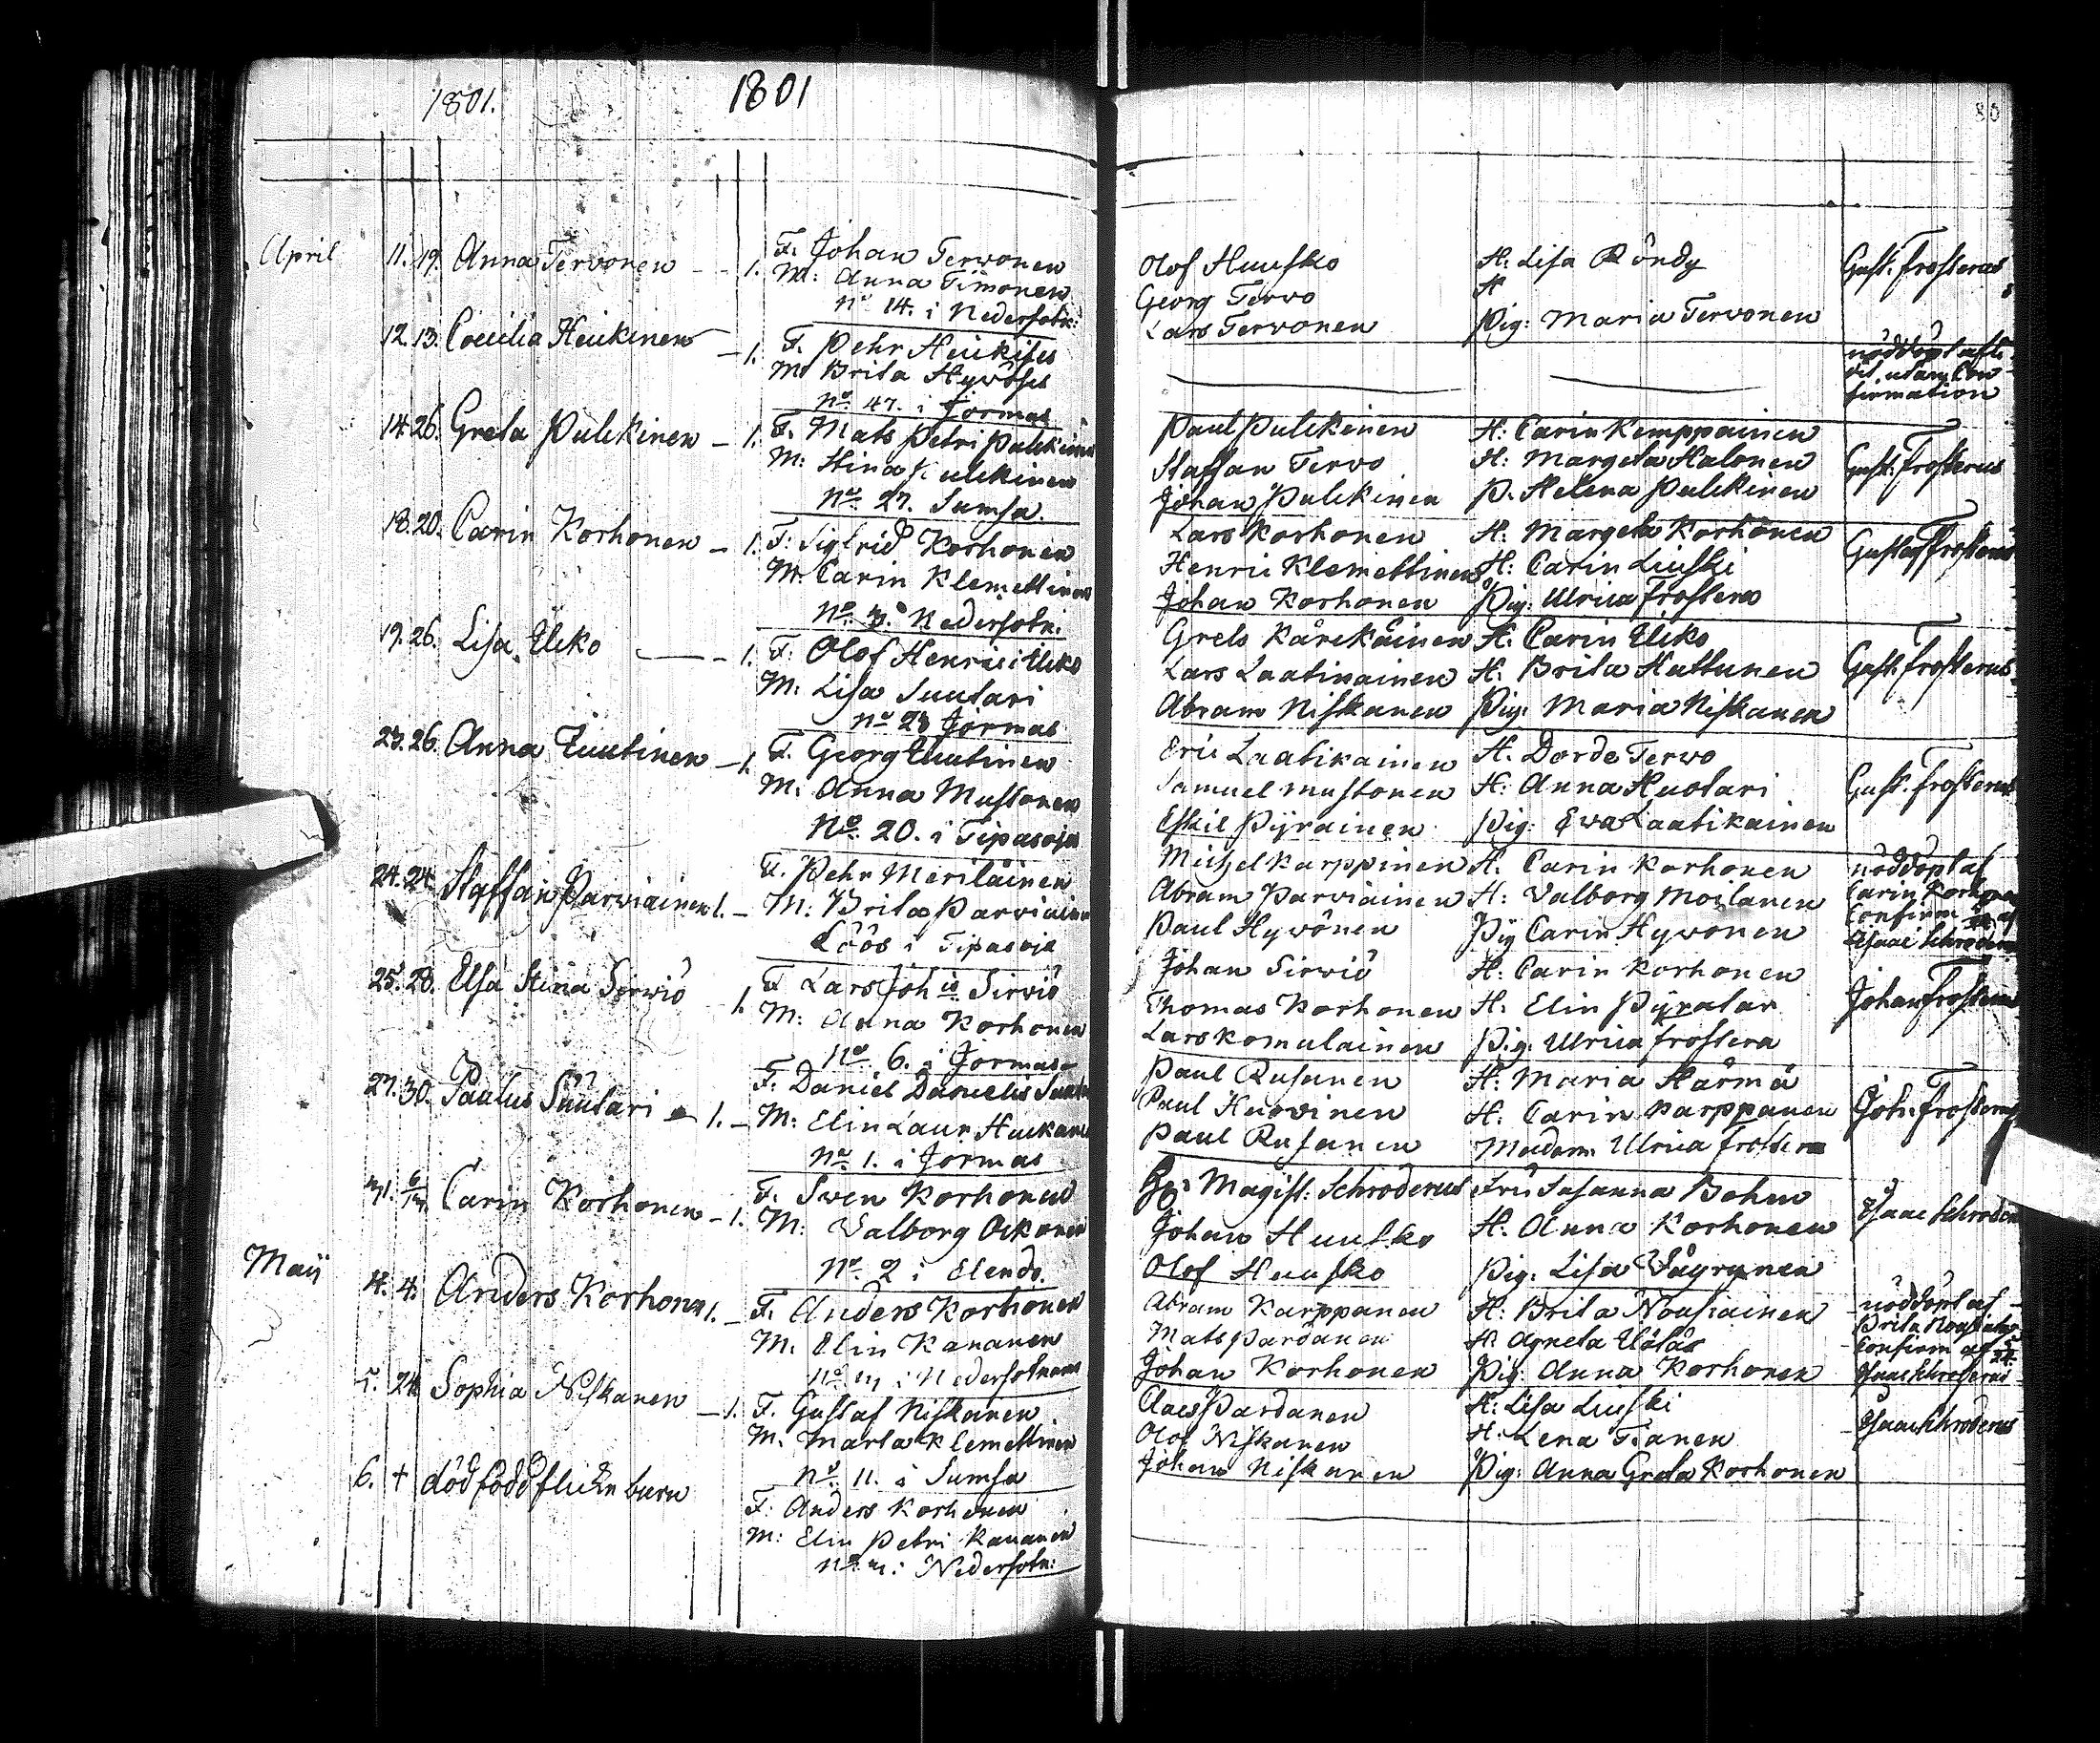 1801. 1801
80
April 11. 19. Anna Tervonen - - 1.
F. Johan Terwonen
M: Anna Timonen
No 14. i Nedersotk:
Olof Huusko H: Lisa Röndy Gust: Frosterus
Georg Tervo H
Lars Tervonen Pig: Maria Tervonen
12. 13. Coecilia Heickinen - 1.
F. Pehr Heickises
M: Brita Hyvöses
No. 47. i Jormas
nöddöpt
utan Con-
firmation
14. 26. Greta Pulckinen - 1.
F. Mats Petri Pulckinen
M: Stina Pulckinen
No. 27. Sumsa.
Paul Pulckinen H: Carin Kemppainen
Staffan Tervo H: Margeta Halonen Gust: Frosterus
Johan Pulckinen P. Helena Pulckinen
18. 20. Carin Korhonen - 1.
F: Sigfrid Korhonen
M: Carin Klemettinen
No. 3. Nedersotk.
Lars Korhonen H: Margeta Korhonen Gustaf Frosterus
Henric Klemettinen H: Carin Liuski
Johan Korhonen Pig: Ulrica Frosterus
19. 26. Lisa Ucko - 1.
F: Olof Henrici Ucko
M: Lisa Suutari
No 23 Jormas
Grels Kärckäinen H: Carin Ucko
Lars Laatikainen H: Brita Hattunen Gust: Frosterus
Abram Niskanen Pig: Maria Niskanen
23. 26. Anna Tuutinen - 1.
F. Georg Tuutinen
M. Anna Mustonen
No. 20. i Tipasoja
Eric Laatikainen H. Dorde Tervo
Samuel Mustonen H: Anna Huotari Gust: Frosterus
Eskil Pyrainen Pig: Eva Laatikainen
24. 24. Staffan Parviainen 1. -
F. Pehr Meriläinen
M: Brita Parviainen
Löös i Tipasoja
Michel Karppinen H. Carin Korhonen nöddöpt af
Abram Parviainen H: Valborg Moilanen Carin Korhonen
Paul Hyvönen Pig Carin Hyvonen Confirm af
Isaac Schroderus
25. 28. Elsa Stina Servio 1.
F Lars Joh is Sirviö
M: Anna Korhonen
No 6. i Jormas
Johan Sirviö H: Carin Korhonen
Thomas Korhonen H: Elin Pyratar Johan Frosterus
Lars Komulainen Pig. Ulrica Frostera
27. 30. Paulus Suutari - 1. -
F: Daniel Danielis
M: Elin Laur
No. 1. i Jormas
Paul Rusanen H: Maria Härmä
Paul Hurvinen H: Carin Karppanen Joh: Frosterus
Paul Rusanen Madam Ulrica Frostera
Carin Korhonen - 1.
F. Sven Korhonen
M: Valborg Ockonen
No. 2 i Elends.
Magist: Schroderus Fru Susanna Bohm
Johan Huusko H: Anna Korhonen Isaac Schroderus
Olof Huusko Pig. Lisa Väyrynen
Maij 4. 4. Anders Korhonen 1. -
F. Anders Korhonen
M. Elin Kananen
Nedersotkamo
Abram Karppanen H: Brita Nousiainen nöddöpt af
Mats Pardanen H: Agneta Brita
Johan Korhonen Pig: Anna Korhonen Confirm af
Isaac Schroderus
5. 24. Sophia Niskanen - 1.
F. Gustaf Niskanen
M. Marta Klemettinen
No. 11. i Sumsa
Claes Pardanen H: Lisa Liuski
Olof Niskanen H: Lena Tianen Isaac Schroderus
Johan Niskanen Pig: Anna Greta Korhonen
6. + död född flicke barn
F: Anders Korhonen
M: Elin Petri Kananen
Nedersotk: